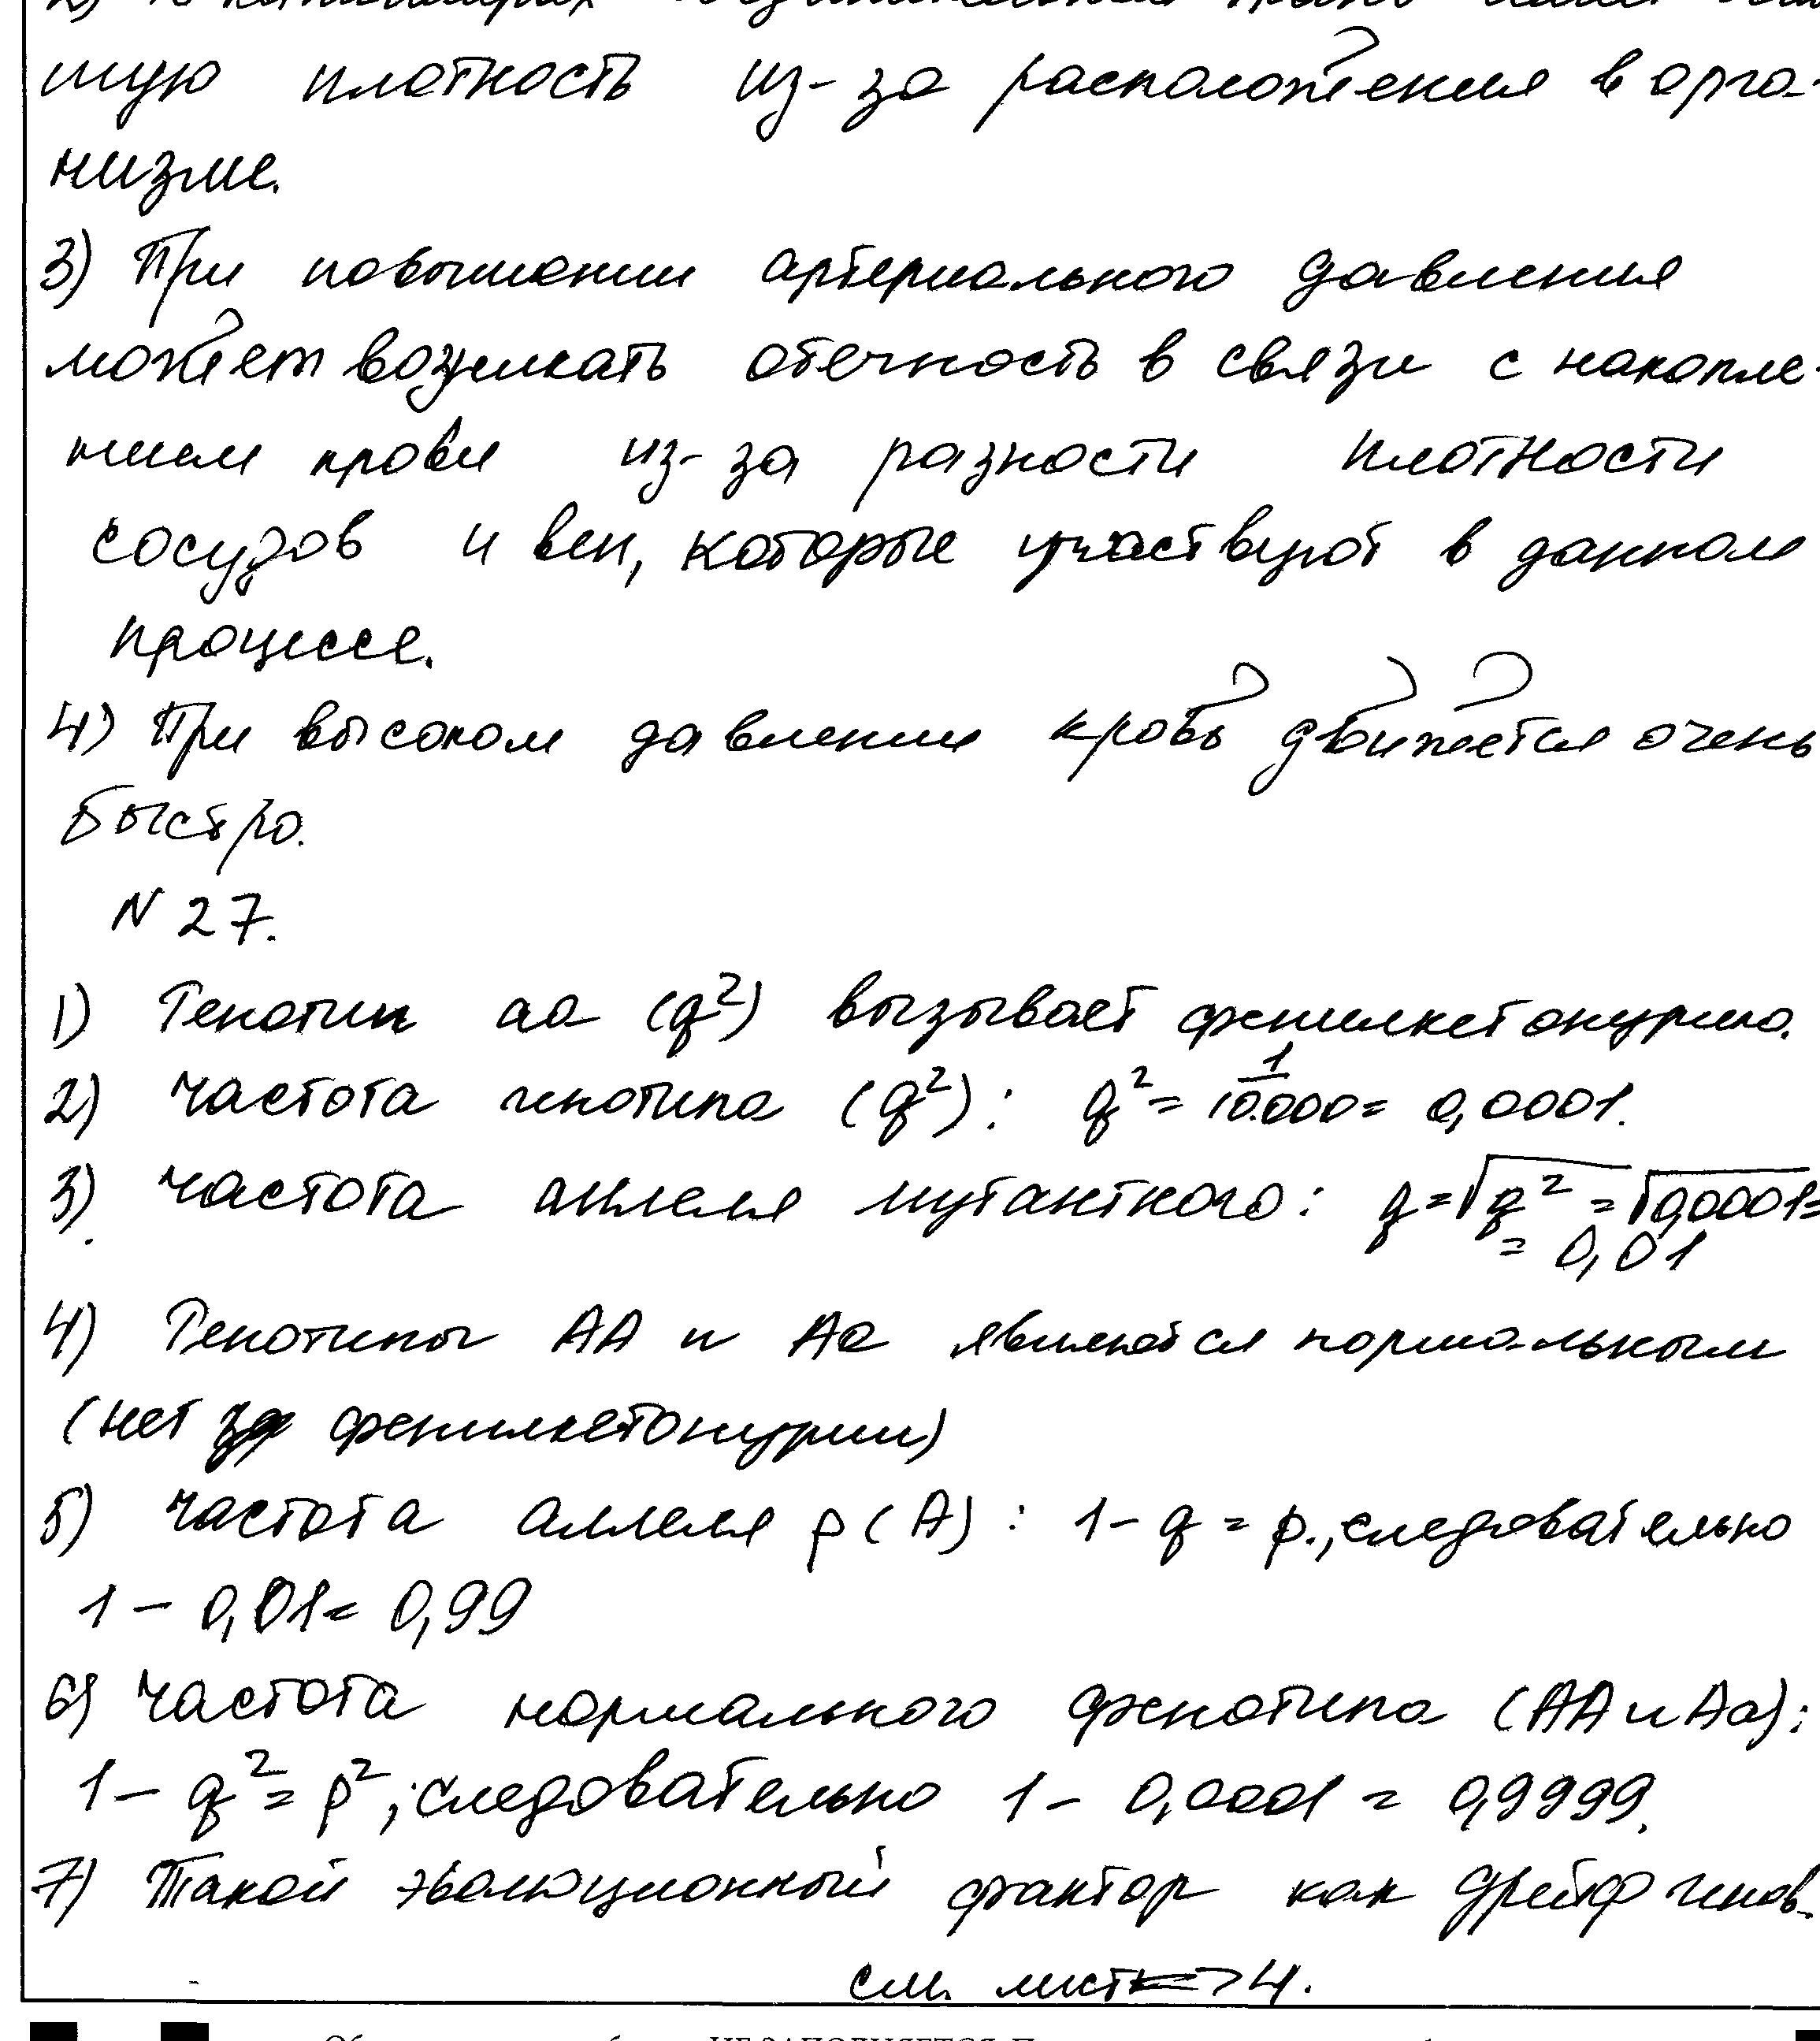 2) В капиллярах
шую плотность из-за расположения в орга-
низме.
3) При повышении артериального давления
может возникать отечность в связи с накопле-
нием крови из-за разности плотности
сосудов и вен, которые участвуют в данном
процессе.
4) При высоком давлении кровь движется очень
быстро.
N 27.
1) Генотип аа (q²) вызывает фенилкетонурию.
2) частота генотипа (q²): q² = 1/10.000 = 0,0001.
3) частота аллеля мутантного: q = √q² = √0,0001 =
= 0,01
4) Генотипы АА и Аа являются нормальным
(нет фенилкетонурии)
5) частота аллеля p(A): 1 - q = p., следовательно
1 - 0,01 = 0,99
6) частота нормального фенотипа (АА и Аа):
1 - q² = p²; следовательно 1 - 0,0001 = 0,9999.
7) Такой эволюционный фактор как дрейф генов.
см. лист => 4.
НЕ ЗАПОЛНЯЕТСЯ.